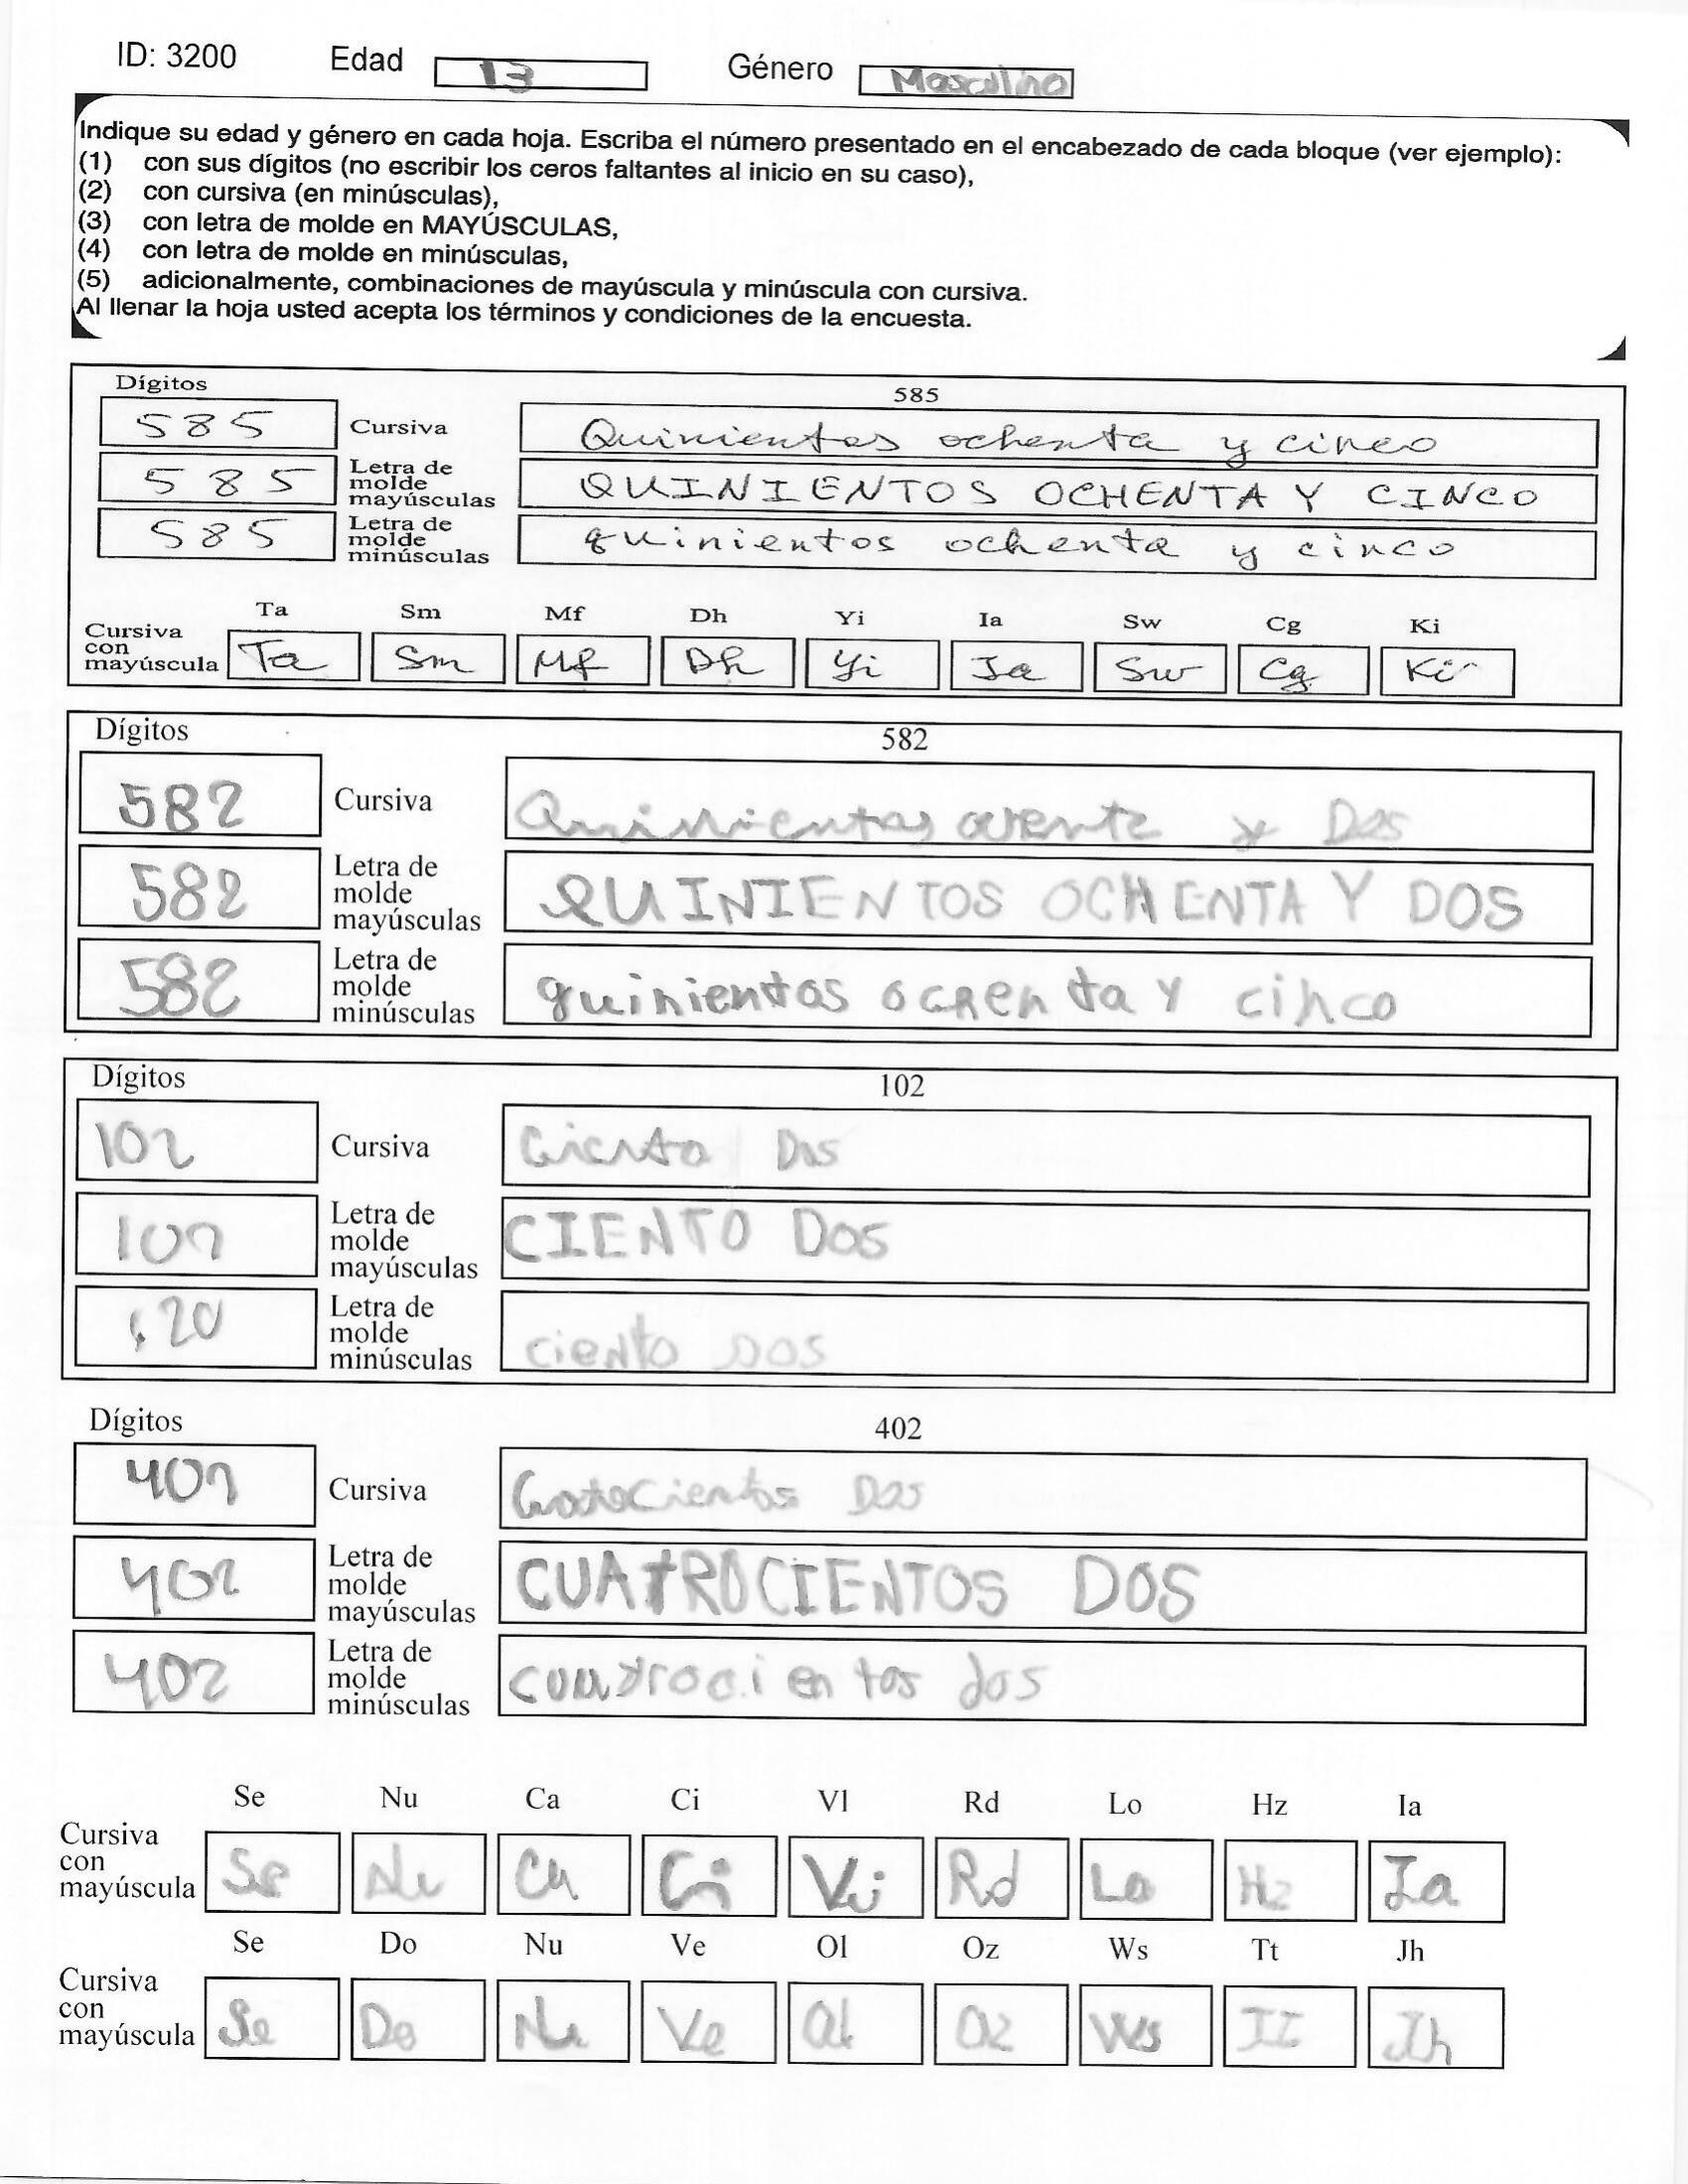 ID: 3200 Edad 13 Género Masculino
Indique su edad y género en cada hoja. Escriba el número presentado en el encabezado de cada bloque (ver ejemplo):
(1) con sus dígitos (no escribir los ceros faltantes al inicio en su caso),
(2) con cursiva (en minúsculas),
(3) con letra de molde en MAYÚSCULAS,
(4) con letra de molde en minúsculas,
(5) adicionalmente, combinaciones de mayúscula y minúscula con cursiva.
Al llenar la hoja usted acepta los términos y condiciones de la encuesta.
Dígitos 585
585 Cursiva Quinientos ochenta y cinco
585 Letra de molde mayúsculas QUINIENTOS OCHENTA Y CINCO
585 Letra de molde minúsculas quinientos ochenta y cinco
Ta Sm Mf Dh Yi Ia Sw Cg Ki
Cursiva con mayúscula Ta Sm Mf Dh Yi Ia Sw Cg Ki
Dígitos 582
582 Cursiva y Dos
582 Letra de molde mayúsculas QUINIENTOS OCHENTA Y DOS
582 Letra de molde minúsculas quinientos ochenta y cinco
Dígitos 102
102 Cursiva Ciento Dos
102 Letra de molde mayúsculas CIENTO DOS
Letra de molde minúsculas ciento DOS
Dígitos 402
402 Cursiva Dos
402 Letra de molde mayúsculas CUATROCIENTOS DOS
402 Letra de molde minúsculas cuatrocientos dos
Se Nu Ca Ci Vl Rd Lo Hz Ia
Cursiva con mayúscula Se Nu Ca Ci Vi Rd Lo Hz Ia
Se Do Nu Ve Ol Oz Ws Tt Jh
Cursiva con mayúscula Se Do Nu Ve Ol Oz Ws II Jh